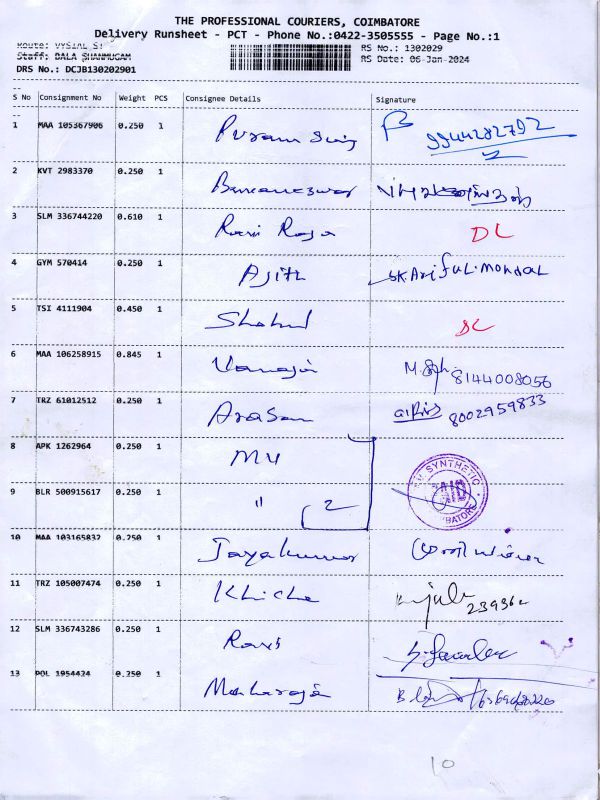 THE PROFESSIONAL COURIERS, COIMBATORE
Delivery Runsheet - PCT - Phone No.:0422-3505555 - Page No.:1
Route: VYSIAL ST
Staff: BALA SHANMUGAM
RS No.: 1302029
RS Date: 06-Jan-2024
DRS No.: DCJB130202901
S No Consignment No Weight PCS Consignee Details Signature
1 MAA 105367906 0.250 1 9944282792
2 KVT 2983370 0.250 1
3 SLM 336744220 0.610 1 Ravi Raja DL
4 GYM 570414 0.250 1 Ajith SK Ariful Mondal
5 TSI 4111904 0.450 1 Shahul DL
6 MAA 106258915 0.845 1 Vanaja 8144008056
7 TRZ 61012512 0.250 1 Arasan 8002959833
8 APK 1262964 0.250 1 MU
SYNTHETIC
9 BLR 500915617 0.250 1 " 2
10 MAA 103165832 0.250 1 Jayakumar
11 TRZ 105007474 0.250 1
12 SLM 336743286 0.250 1 Ravi
13 POL 1954424 0.250 1 Maharaja
10